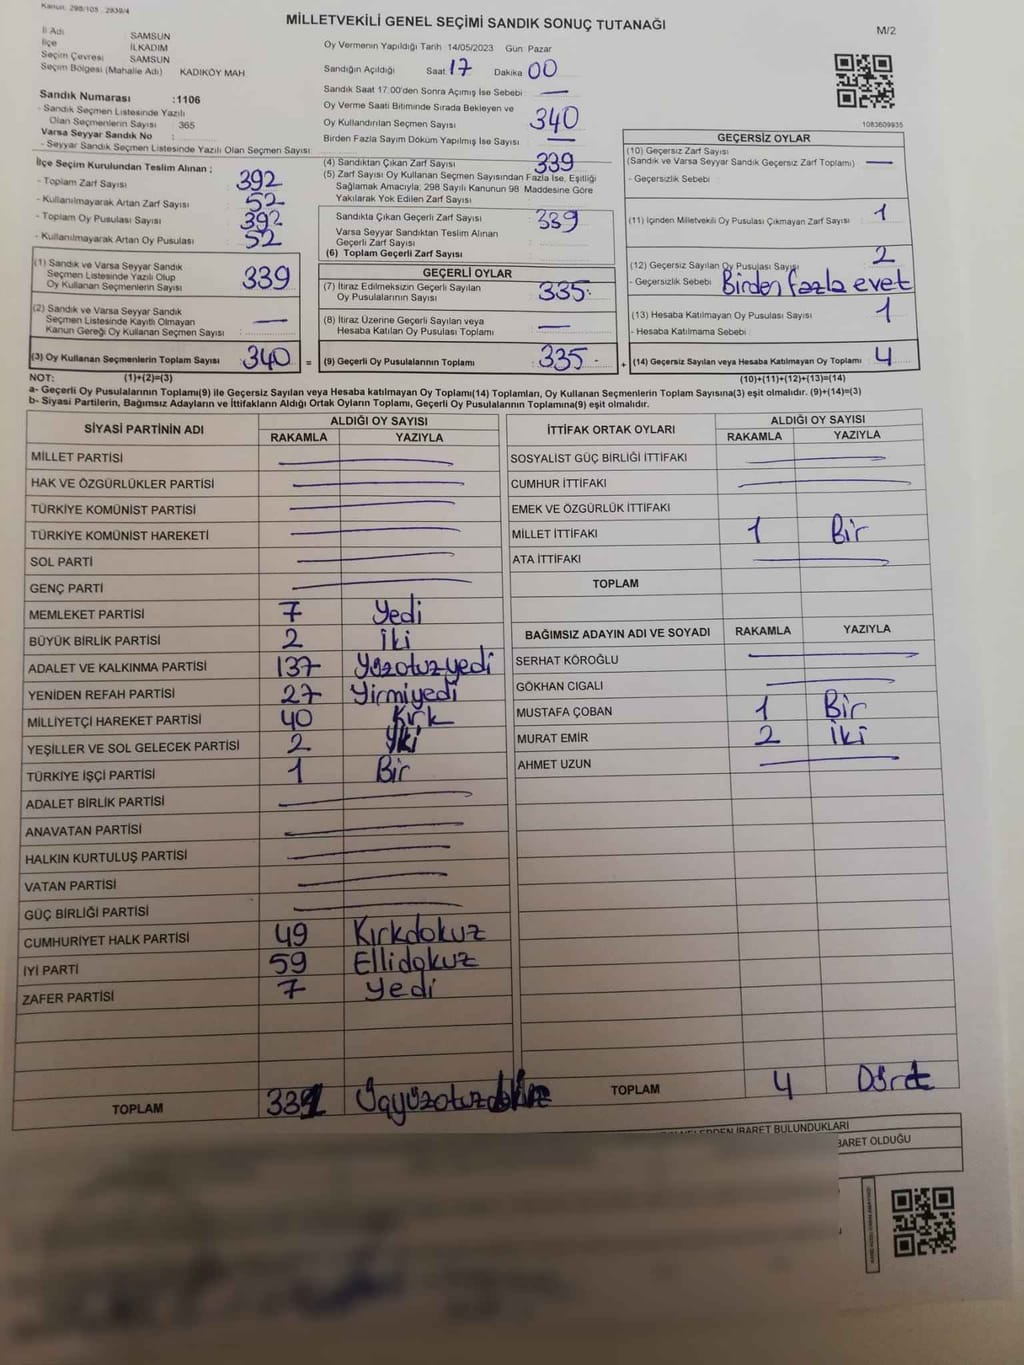 Kanun: 298/105 - 2839/4
MİLLETVEKİLİ GENEL SEÇİMİ SANDIK SONUÇ TUTANAĞI
M/2
İl Adı SAMSUN
İlçe İLKADIM
Seçim Çevresi SAMSUN
Seçim Bölgesi (Mahalle Adı) KADIKÖY MAH
Oy Vermenin Yapıldığı Tarih 14/05/2023 Gün Pazar
Sandığın Açıldığı Saat 17 Dakika 00
Sandık Saat 17:00'den Sonra Açımış İse Sebebi
Oy Verme Saati Bitiminde Sırada Bekleyen ve
Oy Kullandırılan Seçmen Sayısı 340
Birden Fazla Sayım Döküm Yapılmış İse Sayısı
Sandık Numarası :1106
- Sandık Seçmen Listesinde Yazılı
Olan Seçmenlerin Sayısı : 365
Varsa Seyyar Sandık No :
- Seyyar Sandık Seçmen Listesinde Yazılı Olan Seçmen Sayısı:
1083609935
İlçe Seçim Kurulundan Teslim Alınan ;
- Toplam Zarf Sayısı 392
- Kullanılmayarak Artan Zarf Sayısı 52
- Toplam Oy Pusulası Sayısı 392
- Kullanılmayarak Artan Oy Pusulası 52
(1) Sandık ve Varsa Seyyar Sandık
Seçmen Listesinde Yazılı Olup
Oy Kullanan Seçmenlerin Sayısı 339
(2) Sandık ve Varsa Seyyar Sandık
Seçmen Listesinde Kayıtlı Olmayan
Kanun Gereği Oy Kullanan Seçmen Sayısı :
(3) Oy Kullanan Seçmenlerin Toplam Sayısı 340 =
(4) Sandıktan Çıkan Zarf Sayısı 339
(5) Zarf Sayısı Oy Kullanan Seçmen Sayısından Fazla İse, Eşitliği
Sağlamak Amacıyla; 298 Sayılı Kanunun 98 Maddesine Göre
Yakılarak Yok Edilen Zarf Sayısı
Sandıkta Çıkan Geçerli Zarf Sayısı 339
Varsa Seyyar Sandıktan Teslim Alınan
Geçerli Zarf Sayısı
(6) Toplam Geçerli Zarf Sayısı
GEÇERLİ OYLAR
(7) İtiraz Edilmeksizin Geçerli Sayılan
Oy Pusulalarının Sayısı 335
(8) İtiraz Üzerine Geçerli Sayılan veya
Hesaba Katılan Oy Pusulası Toplamı
(9) Geçerli Oy Pusulalarının Toplamı 335 +
GEÇERSİZ OYLAR
(10) Geçersiz Zarf Sayısı
(Sandık ve Varsa Seyyar Sandık Geçersiz Zarf Toplamı)
- Geçersizlik Sebebi
(11) İçinden Milletvekili Oy Pusulası Çıkmayan Zarf Sayısı 1
(12) Geçersiz Sayılan Oy Pusulası Sayısı 2
- Geçersizlik Sebebi Birden fazla evet
(13) Hesaba Katılmayan Oy Pusulası Sayısı 1
- Hesaba Katılmama Sebebi
(14) Geçersiz Sayılan veya Hesaba Katılmayan Oy Toplamı 4
NOT: (1)+(2)=(3) (10)+(11)+(12)+(13)=(14)
a- Geçerli Oy Pusulalarının Toplamı(9) ile Geçersiz Sayılan veya Hesaba katılmayan Oy Toplamı(14) Toplamları, Oy Kullanan Seçmenlerin Toplam Sayısına(3) eşit olmalıdır. (9)+(14)=(3)
b- Siyasi Partilerin, Bağımsız Adayların ve İttifakların Aldığı Ortak Oyların Toplamı, Geçerli Oy Pusulalarının Toplamına(9) eşit olmalıdır.
SİYASİ PARTİNİN ADI ALDIĞI OY SAYISI
RAKAMLA YAZIYLA
MİLLET PARTİSİ
HAK VE ÖZGÜRLÜKLER PARTİSİ
TÜRKİYE KOMÜNİST PARTİSİ
TÜRKİYE KOMÜNİST HAREKETİ
SOL PARTİ
GENÇ PARTİ
MEMLEKET PARTİSİ 7 Yedi
BÜYÜK BİRLİK PARTİSİ 2 İki
ADALET VE KALKINMA PARTİSİ 137 Yüzotuzyedi
YENİDEN REFAH PARTİSİ 27 Yirmiyedi
MİLLİYETÇİ HAREKET PARTİSİ 40 Kırk
YEŞİLLER VE SOL GELECEK PARTİSİ 2 İki
TÜRKİYE İŞÇİ PARTİSİ 1 Bir
ADALET BİRLİK PARTİSİ
ANAVATAN PARTİSİ
HALKIN KURTULUŞ PARTİSİ
VATAN PARTİSİ
GÜÇ BİRLİĞİ PARTİSİ
CUMHURİYET HALK PARTİSİ 49 Kırkdokuz
İYİ PARTİ 59 Ellidokuz
ZAFER PARTİSİ 7 Yedi
TOPLAM 331
İTTİFAK ORTAK OYLARI ALDIĞI OY SAYISI
RAKAMLA YAZIYLA
SOSYALİST GÜÇ BİRLİĞİ İTTİFAKI
CUMHUR İTTİFAKI
EMEK VE ÖZGÜRLÜK İTTİFAKI
MİLLET İTTİFAKI 1 Bir
ATA İTTİFAKI
TOPLAM
BAĞIMSIZ ADAYIN ADI VE SOYADI RAKAMLA YAZIYLA
SERHAT KÖROĞLU
GÖKHAN CIGALI
MUSTAFA ÇOBAN 1 Bir
MURAT EMİR 2 İki
AHMET UZUN
TOPLAM 4 Dört
İBARET BULUNDUKLARI
BARET OLDUĞU